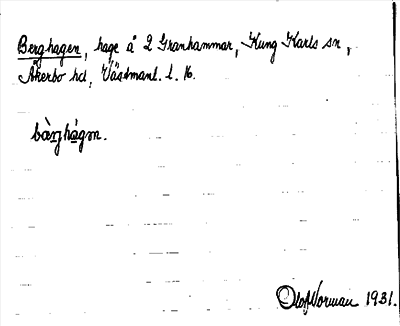 Berghagen, hage å 2 Granhammar, Kung Karls sn,
Åkerbo hd, Västmanl. l. 16.
bàrjhágɐn.
Olof Norman 1931.